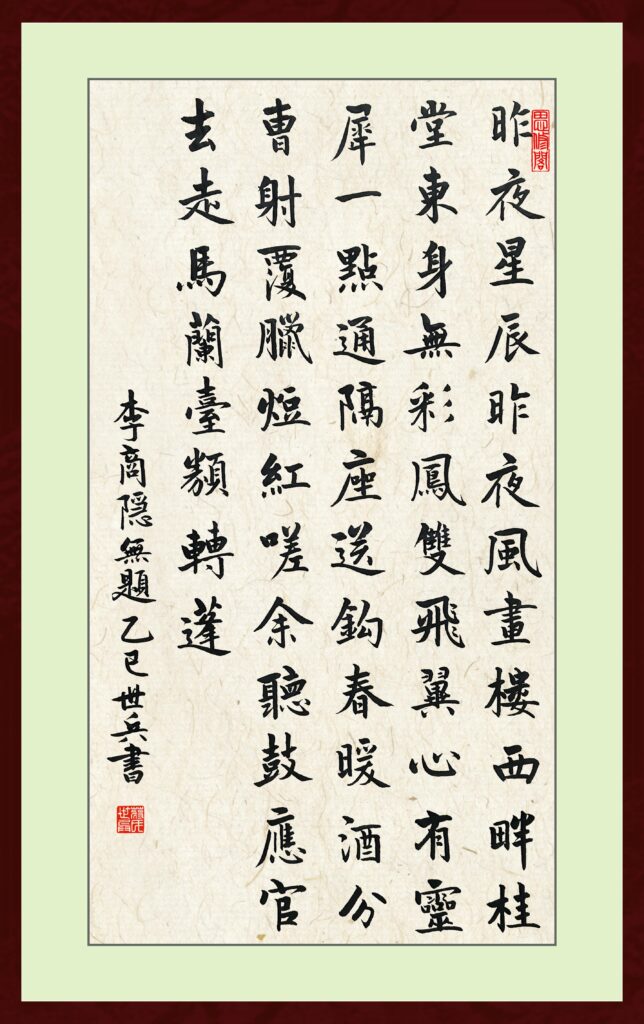 思修閣
昨夜星辰昨夜風畫樓西畔桂
堂東身無彩鳳雙飛翼心有靈
犀一點通隔座送鈎春暖酒分
曹射覆臘燈紅嗟余聽鼓應官
去走馬蘭臺類轉蓬
李商隐無題乙巳世兵書